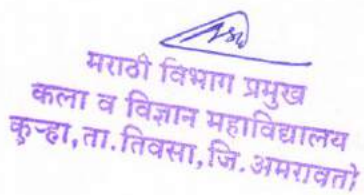 मराठी विभाग प्रमुख
कला व विज्ञान महाविद्यालय
कुऱ्हा, ता. तिवसा, जि. अमरावती